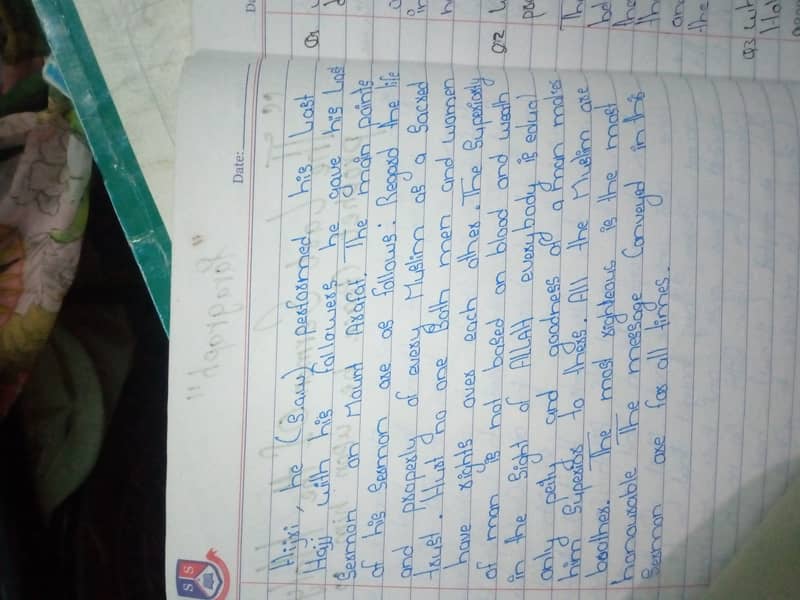 Date:
Hijri, he (s.a.w) performed his Last
Hajj with his followers he gave his Last
Sermon on Mount Arafat. The main points
of his Sermon are as follows: Regard the life
and property of every Muslim as a Sacred
trust. Hurt no one Both men and women
have rights over each other. The Superiority
of man is not based on blood and wealth
in the Sight of ALLAH everybody is equal
only peity and goodness of a man makes
him Superior to thers. All the Muslim are
brother. The most righteous is the most
honourable The message Conveyed in this
Sermon are for all times.
S S
Q1
Q2
Th
the
th
an
the
Q3 Wh